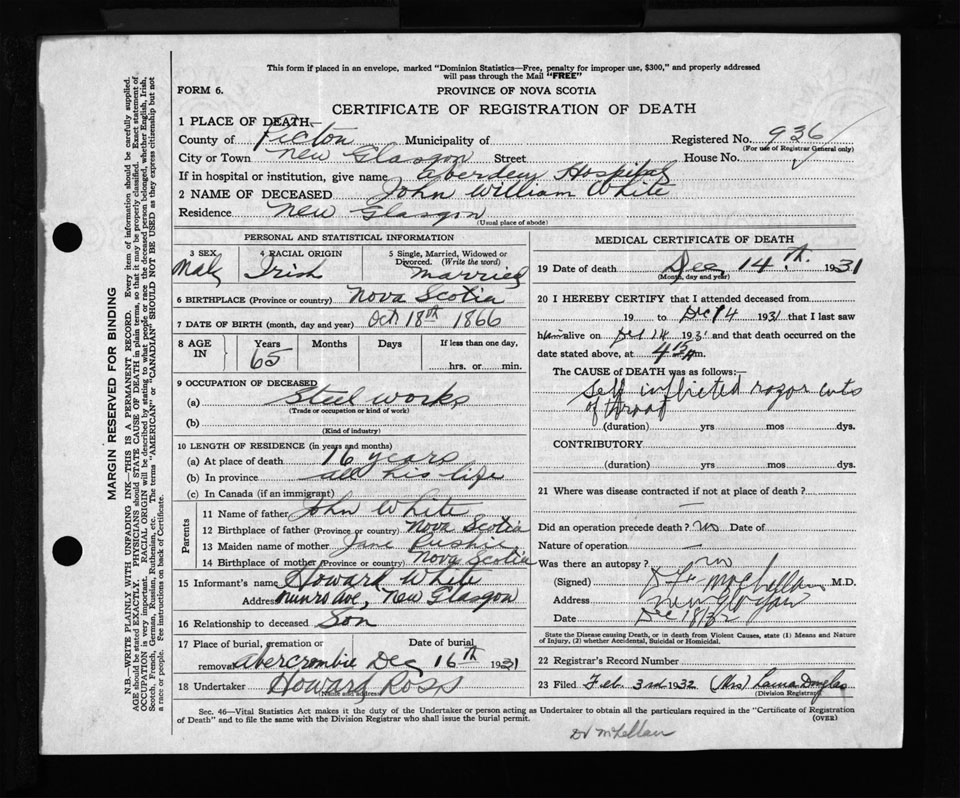 This form if placed in an envelope, marked "Dominion Statistics—Free, penalty for improper use, $300," and properly addressed
will pass through the Mail "FREE"
FORM 6.
PROVINCE OF NOVA SCOTIA
CERTIFICATE OF REGISTRATION OF DEATH
1 PLACE OF DEATH—
County of Pictou Municipality of Registered No. 936
(For use of Registrar General only)
City or Town New Glasgow Street House No.
If in hospital or institution, give name Aberdeen Hospital
2 NAME OF DECEASED John William White
Residence New Glasgow
(Usual place of abode)
PERSONAL AND STATISTICAL INFORMATION
3 SEX 4 RACIAL ORIGIN 5 Single, Married, Widowed or
Divorced. (Write the word)
Male Irish married
6 BIRTHPLACE (Province or country) Nova Scotia
7 DATE OF BIRTH (month, day and year) Oct 18th 1866
8 AGE IN Years Months Days If less than one day,
65 hrs. or min.
9 OCCUPATION OF DECEASED
(a) Steel works
(Trade or occupation or kind of work)
(b)
(Kind of industry)
10 LENGTH OF RESIDENCE (in years and months)
(a) At place of death 16 years
(b) In province all his life
(c) In Canada (if an immigrant)
Parents
11 Name of father John White
12 Birthplace of father (Province or country) Nova Scotia
13 Maiden name of mother Jane
14 Birthplace of mother (Province or country) Nova Scotia
15 Informant's name Howard White
Address Munro Ave, New Glasgow
16 Relationship to deceased Son
17 Place of burial, cremation or Date of burial
removal Abercrombie Dec 16th 1931
18 Undertaker Howard Ross
MEDICAL CERTIFICATE OF DEATH
19 Date of death Dec 14th. 1931
(Month, day and year)
20 I HEREBY CERTIFY that I attended deceased from
19 to Dec 14 1931 that I last saw
him alive on Dec 14 1931 and that death occurred on the
date stated above, at 4 m.
The CAUSE of DEATH was as follows:—
Self inflicted razor cuts
of throat
(duration) yrs mos dys.
CONTRIBUTORY
(duration) yrs mos dys.
21 Where was disease contracted if not at place of death?
—
Did an operation precede death? no Date of
Nature of operation —
Was there an autopsy? no
(Signed) McLellan M.D.
Address
Date Dec 18/32
State the Disease causing Death, or in death from Violent Causes, state (1) Means and Nature
of Injury, (2) whether Accidental, Suicidal or Homicidal.
22 Registrar's Record Number
23 Filed Feb. 3rd 1932 (Mrs) Laina Douglas
(Division Registrar)
Sec. 46—Vital Statistics Act makes it the duty of the Undertaker or person acting as Undertaker to obtain all the particulars required in the "Certificate of Registration
of Death" and to file the same with the Division Registrar who shall issue the burial permit.
(OVER)
Dr McLellan
MARGIN RESERVED FOR BINDING
N.B.—WRITE PLAINLY WITH UNFADING INK—THIS IS A PERMANENT RECORD. Every item of information should be carefully supplied.
AGE should be stated EXACTLY. PHYSICIANS should STATE CAUSE OF DEATH in plain terms, so that it may be properly classified. Exact statement of
OCCUPATION is very important. RACIAL ORIGIN will be described by stating to what people or race the deceased person belonged, whether English, Irish,
Scotch, French, German, Russian, Ruthenian, etc. The terms "AMERICAN" or "CANADIAN" SHOULD NOT BE USED as they express citizenship but not
a race or people. See instructions on back of Certificate.